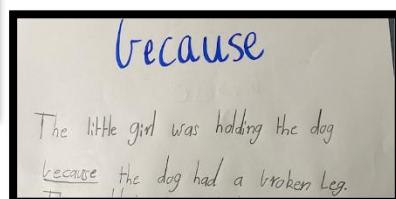 because
The little girl was holding the dog
because the dog had a broken leg.